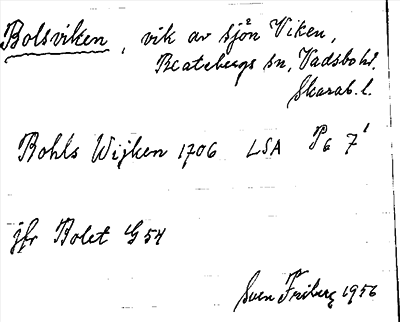 Bolsviken, vik av sjön Viken,
Beatebergs sn, Vadsbo hd.
Skarab. l.
Bohls Wijken 1706 LSA P6 7¹
jfr Bolet G 54
Sven Friberg 1956